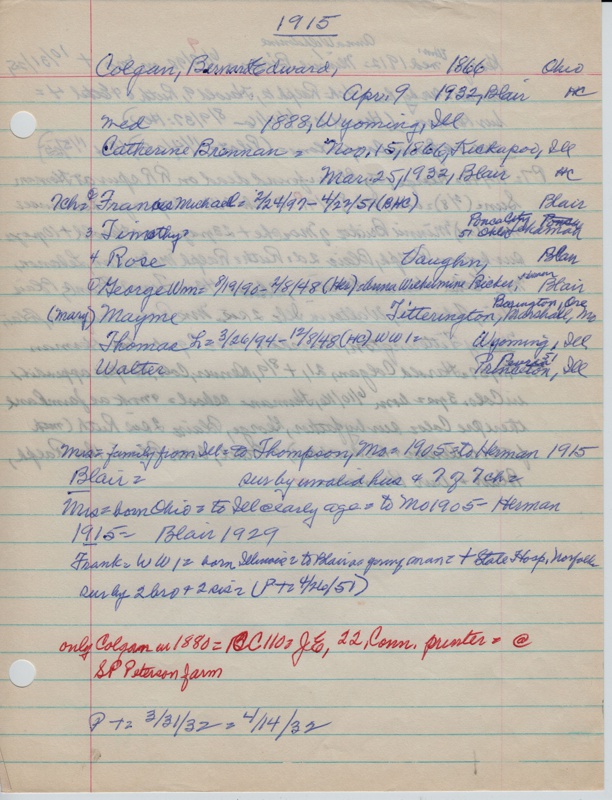 1915
Colgan, Bernard Edward, 1866 Ohio
Apr. 9 1932, Blair HC
med 1888, Wyoming, Ill
Catherine Brannan = Nov, 15, 1866, Kickapoo, Ill
Mar. 25, 1932, Blair HC
7ch = Francis Michael = 2/24/97 - 4/27/51 (BHC) Blair
3 Timothy? Ponca City
51 Okla
4 Rose Vaughn, Blair
① George Wm = 8/19/90 - 2/8/48 (HCs) Anna Wilhelmine Rieker, Blair
(Mary) Mayme Titterington, Marshall, Mo
Thomas L = 3/26/94 - 12/8/48 (HC) WW 1 = Wyoming, Ill
Walter Princeton, Ill
Mrs = family from Ill = to Thompson, Mo = 1905 = to Herman 1915
Blair = sur by invalid hus + 7 of 7 ch =
Mrs = born Ohio = to Ill @ early age = to Mo 1905 - Herman
1915 = Blair 1929
Frank = WW 1 = born Illinois = to Blair as young man = + State Hosp, Norfolk
sur by 2 bro + 2 sis = (P + = 4/26/51)
only Colgan in 1880 = BC 110 = J E, 22, Conn. printer = @
S P Peterson farm
P + = 3/31/32 = 4/14/32